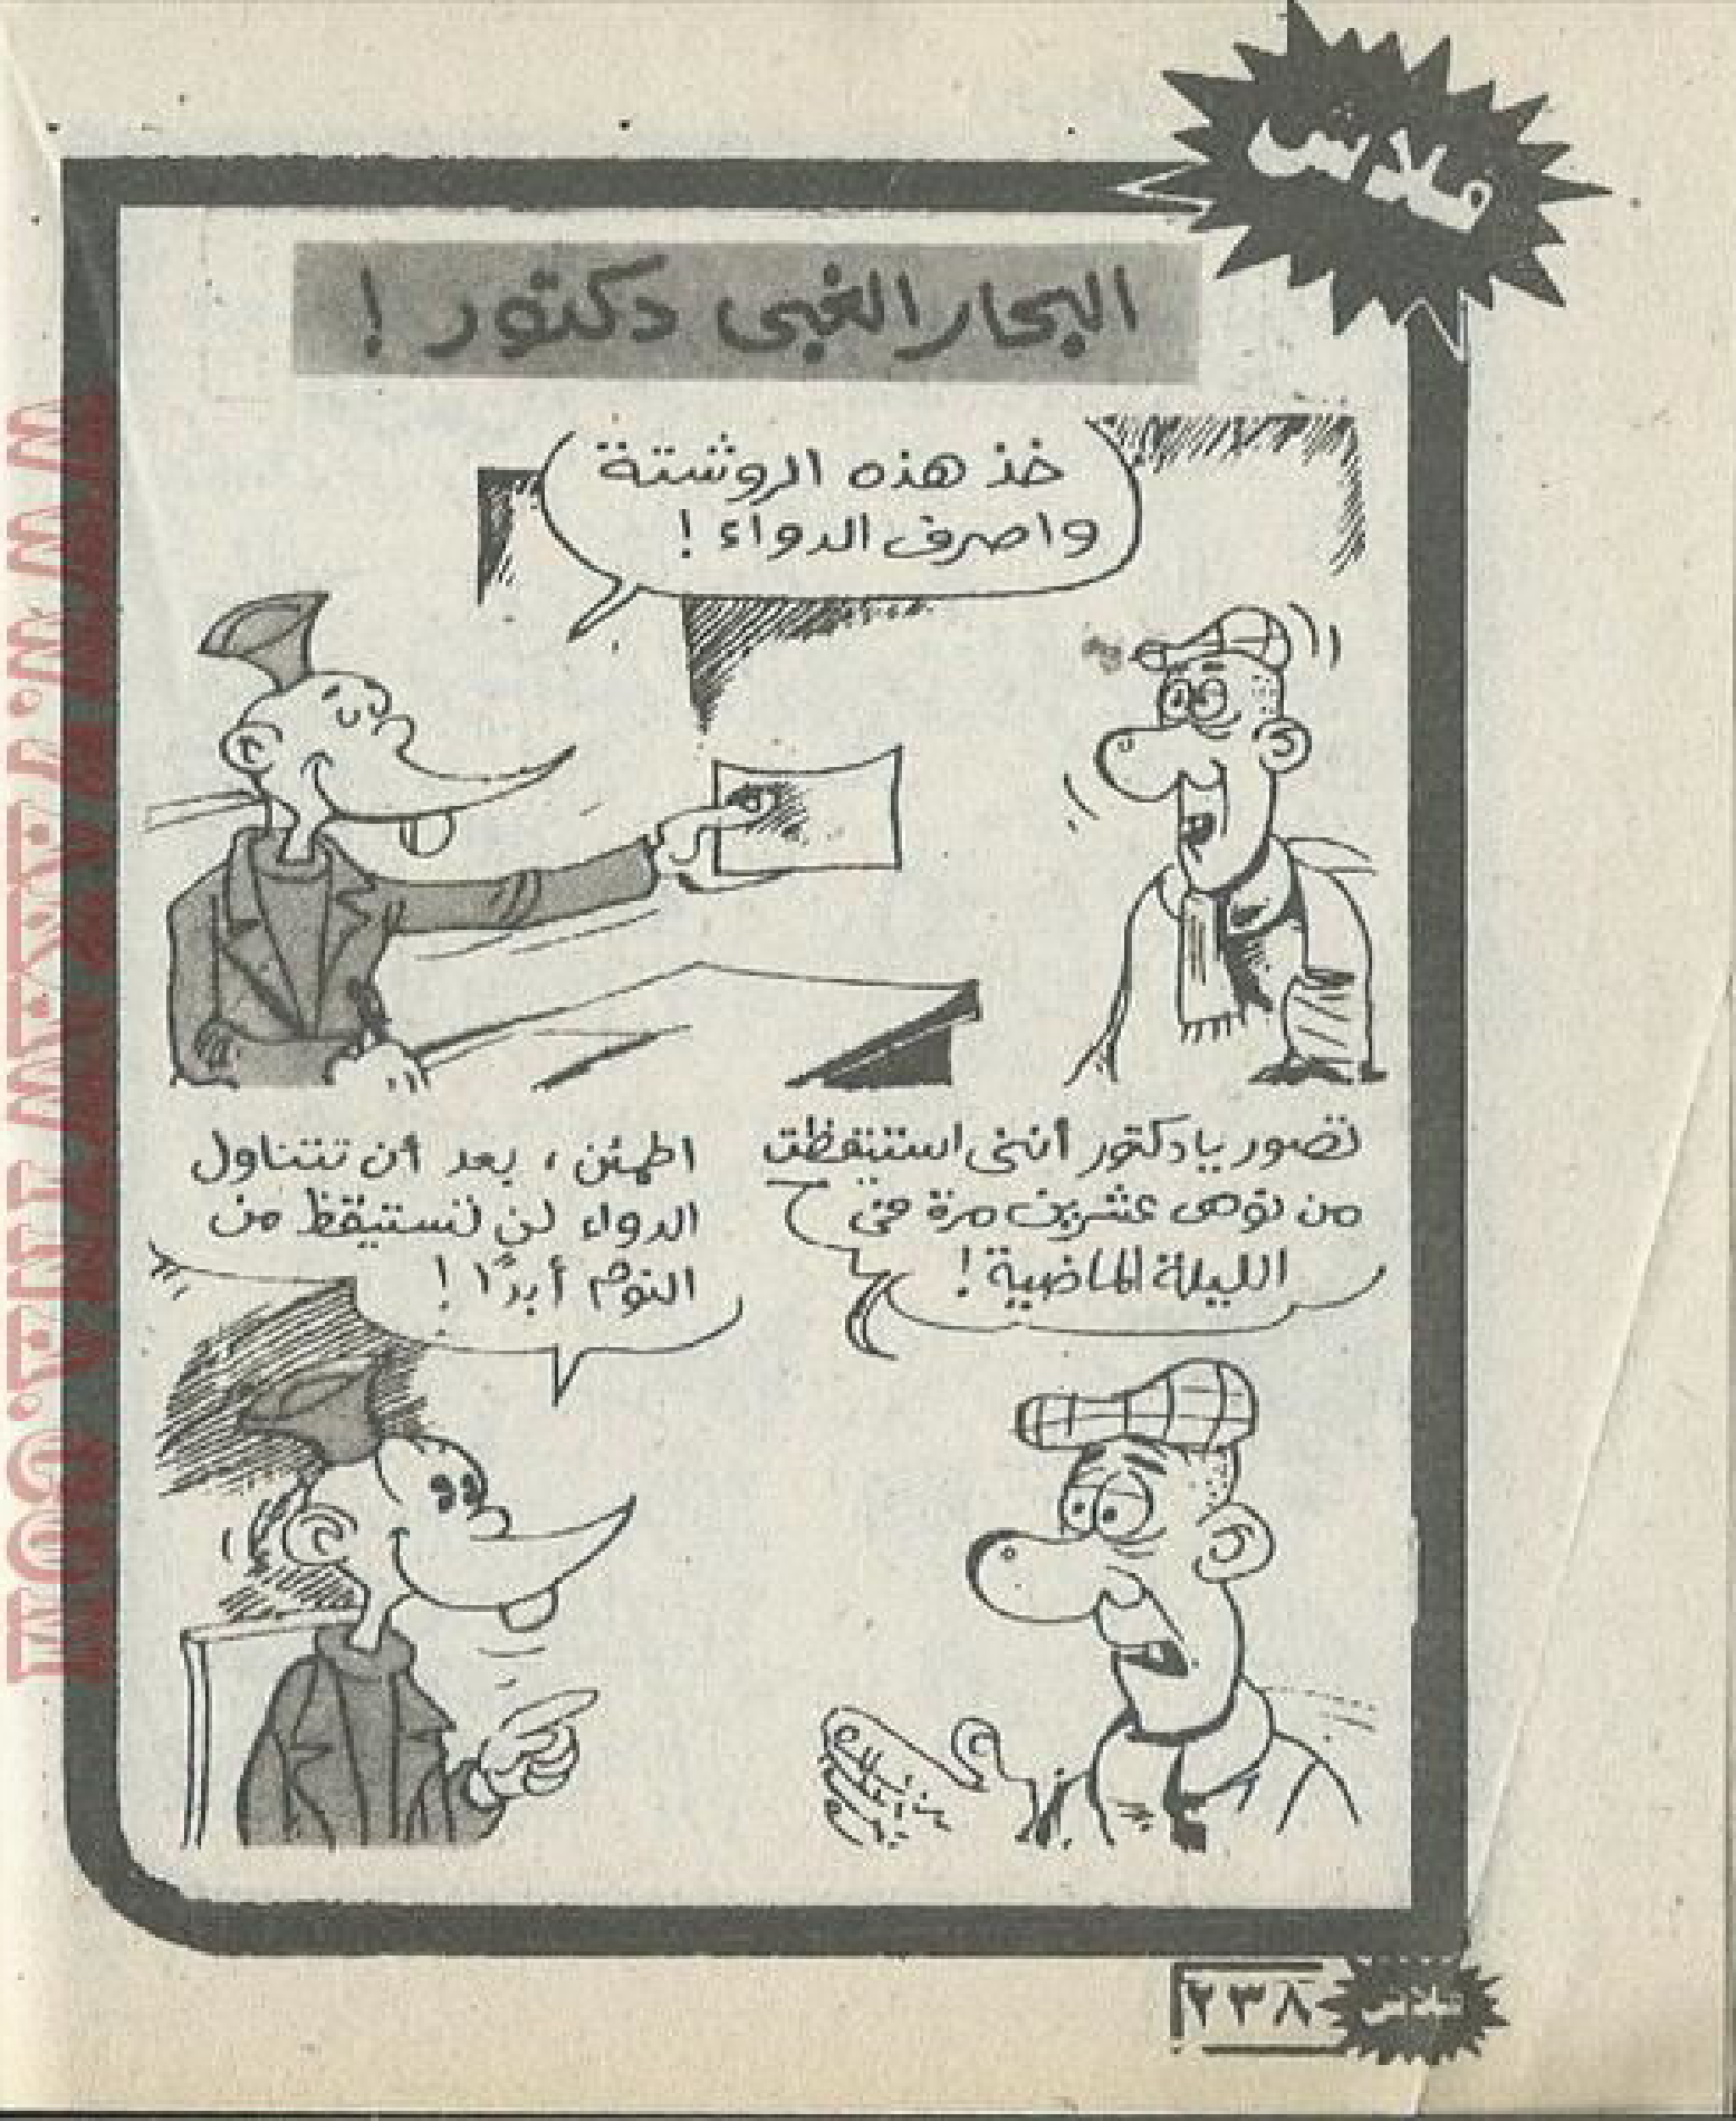 فلاش
البحار الغبى دكتور !
خذ هذه الروشتة
واصرف الدواء !
تصور يا دكتور أننى استيقظت
من نومى عشرين مرة فى
الليلة الماضية !
اطمئن ، بعد أن تتناول
الدواء لن تستيقظ من
النوم أبدًا !
٢٣٨
فلاش